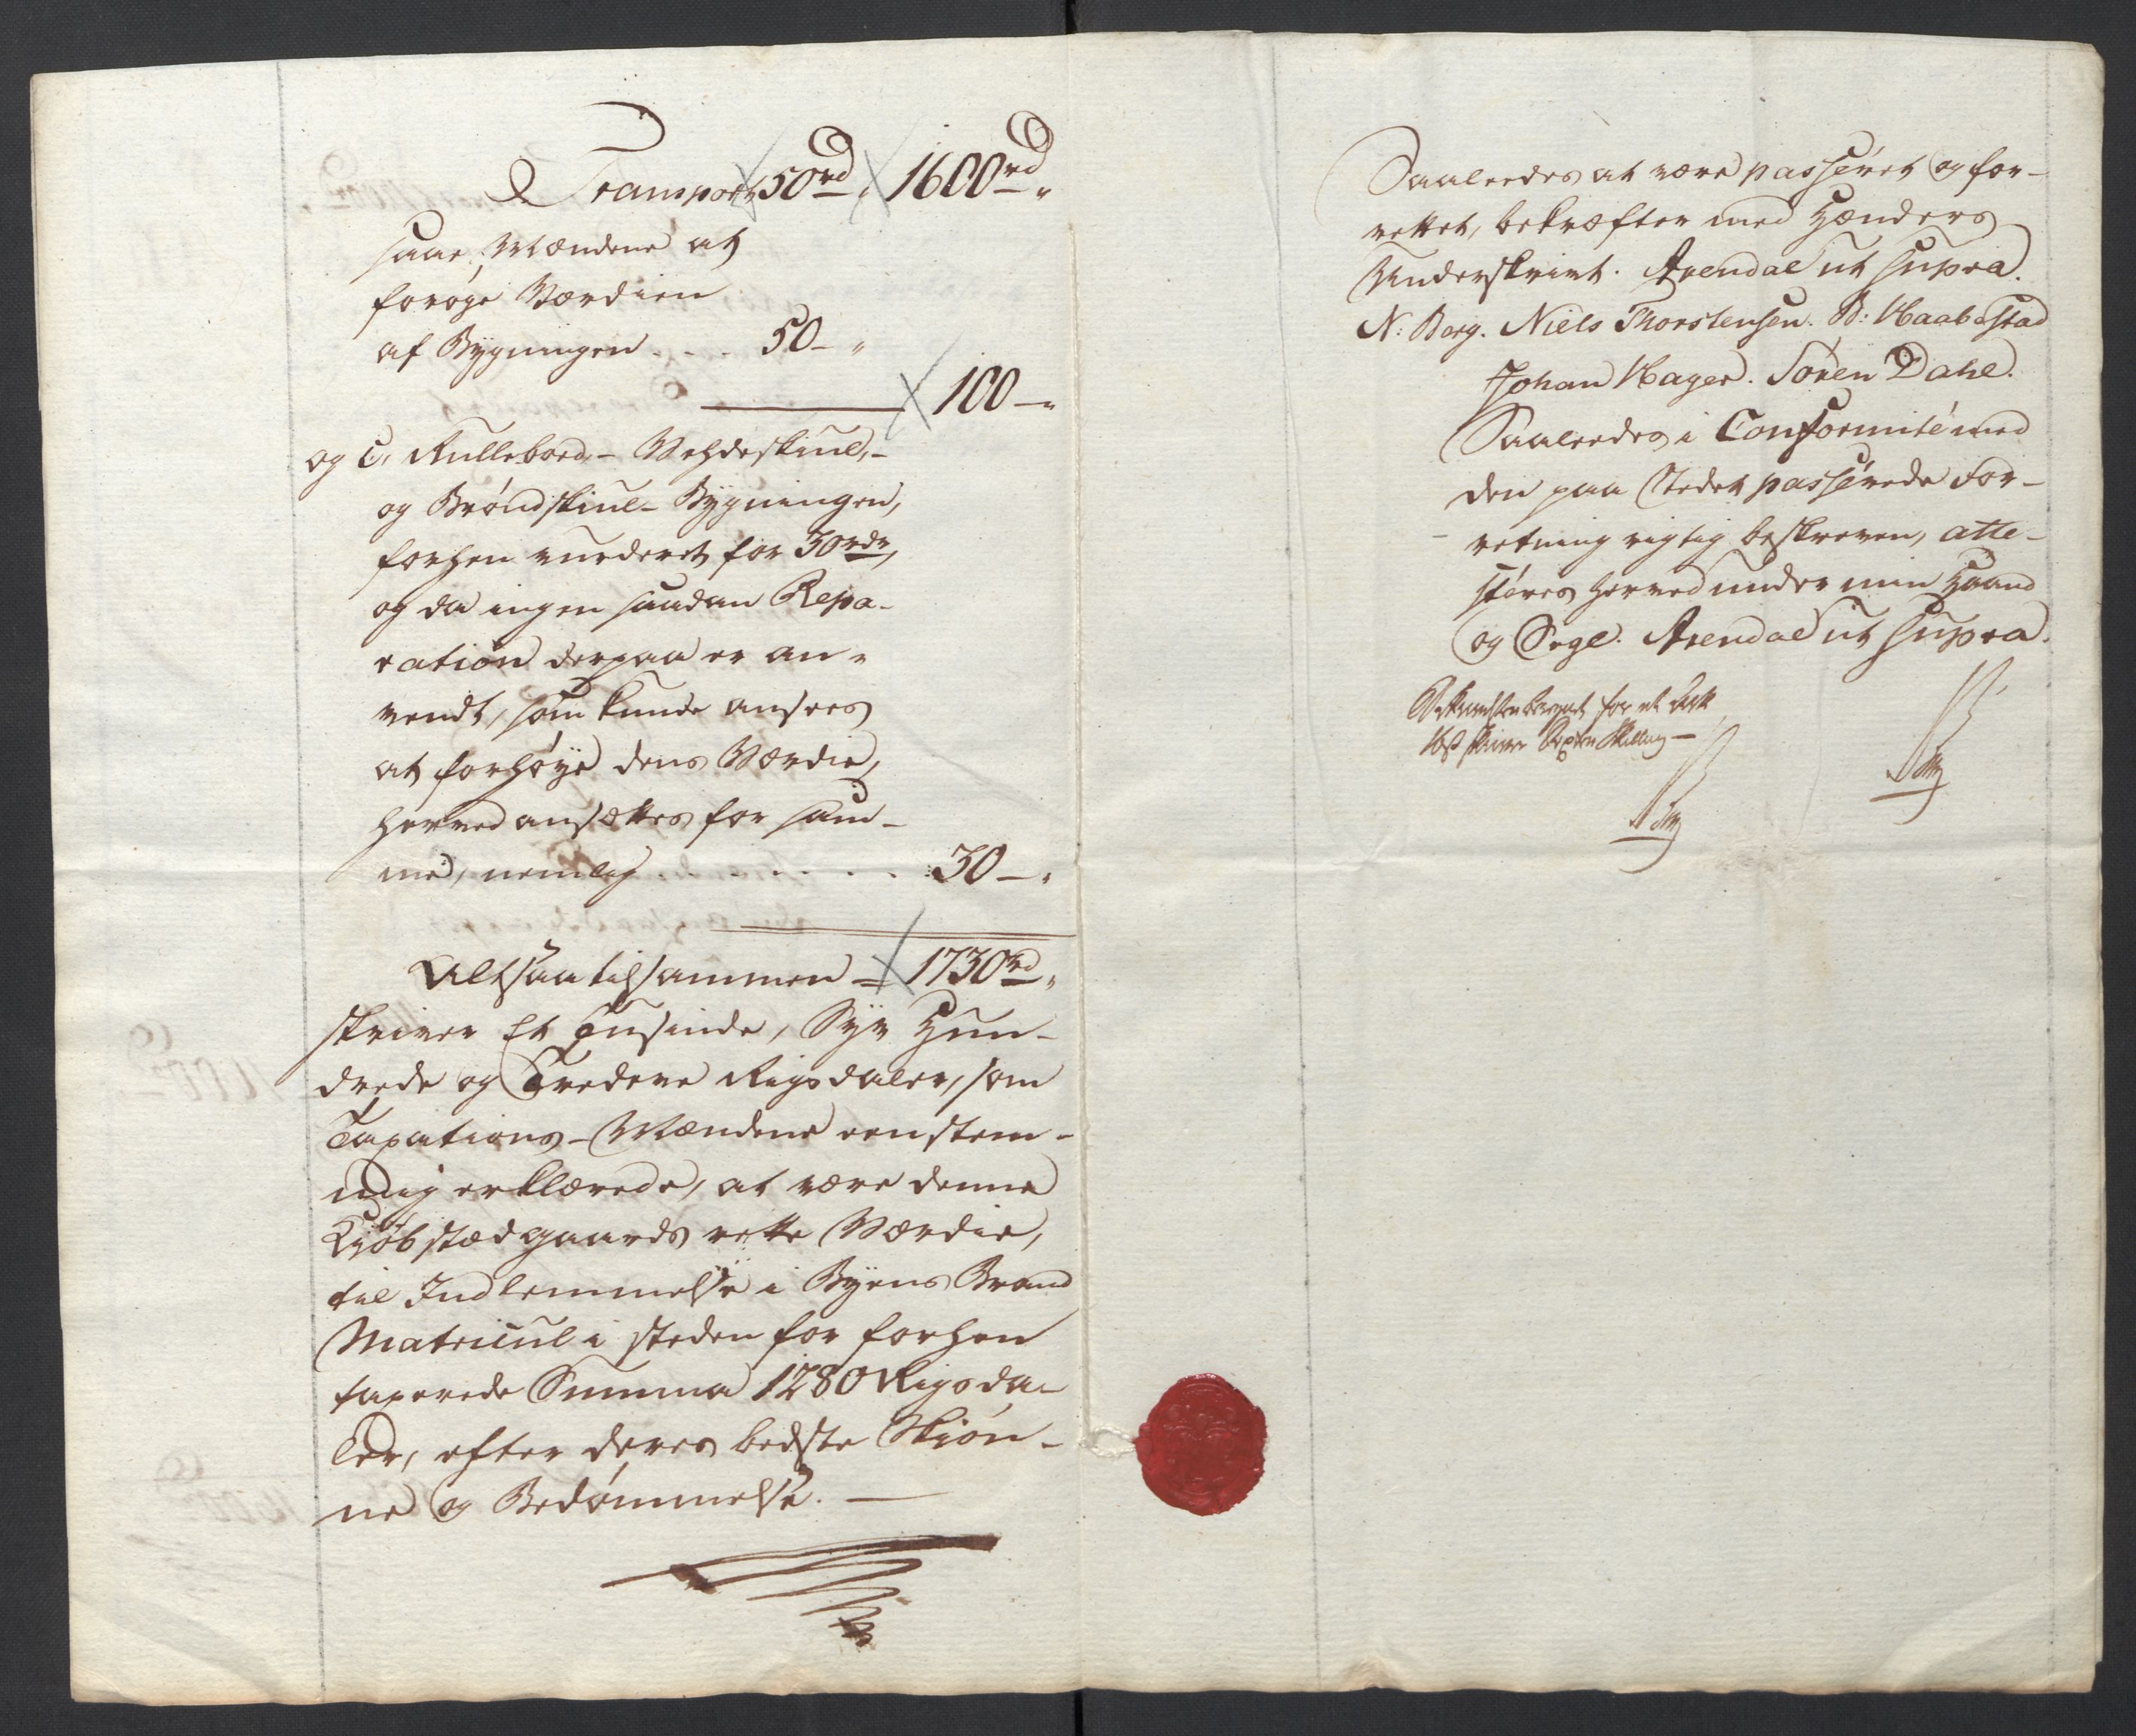 Transport 50rd „ 1600rd „
saae Mændene at
forøge Værdien
af Bygningen . . . . 50 - „
100 - „
og C, Rullebord,- Vehdeskiul,-
og Brøndskiul- Bygningen,
forhen vurderet for 30rdr,
og da ingen saadan Repa-
ration derpaa er an-
vendt, som kunde ansees
at forhøye dens Værdie,
herved ansættes for sam-
me, nemlig . . . . . . 30 - „
Altsaa tilsammen = 1730rd „
skriver Et Tusinde, Syv Hun-
drede og Tredeve Rigsdaler, som
Taxations-Mændene eenstem-
mig erklærede, at være denne
Kiøbstædgaards rette Værdie,
til Indlemmelse i Byens Brand
Matricul i steden for forhen
taxerede Summa 1280 Rigsda-
ler, efter deres bedste Skiøn-
ne og Bedømmelse. —
Saaledes at være passeret og for-
rettet, bekræfter med Hænders
Underskrivt. Arendal ut supra.
N: Borg. Niels Thorstensen. B: Haabestad
Johan Hager. Sören Dahl.
Saaledes i Conformité med
den paa Stedet passerede For-
retning rigtig beskreven, atte-
steres herved under min Haand
og Segl. Arendal ut supra.
for et
16ß skriver Sexten Skilling —